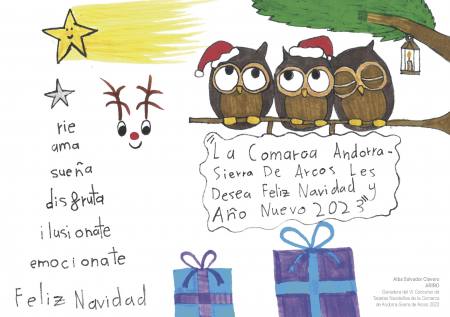 rie
ama
sueña
disfruta
ilusionate
emocionate
Feliz Navidad
"La Comarca Andorra-
Sierra De Arcos Les
Desea Feliz Navidad y
Año Nuevo 2023"
Alba Salvador Clavero
ARIÑO
Ganadora del VI Concurso de
Tarjetas Navideñas de la Comarca
de Andorra-Sierra de Arcos 2022